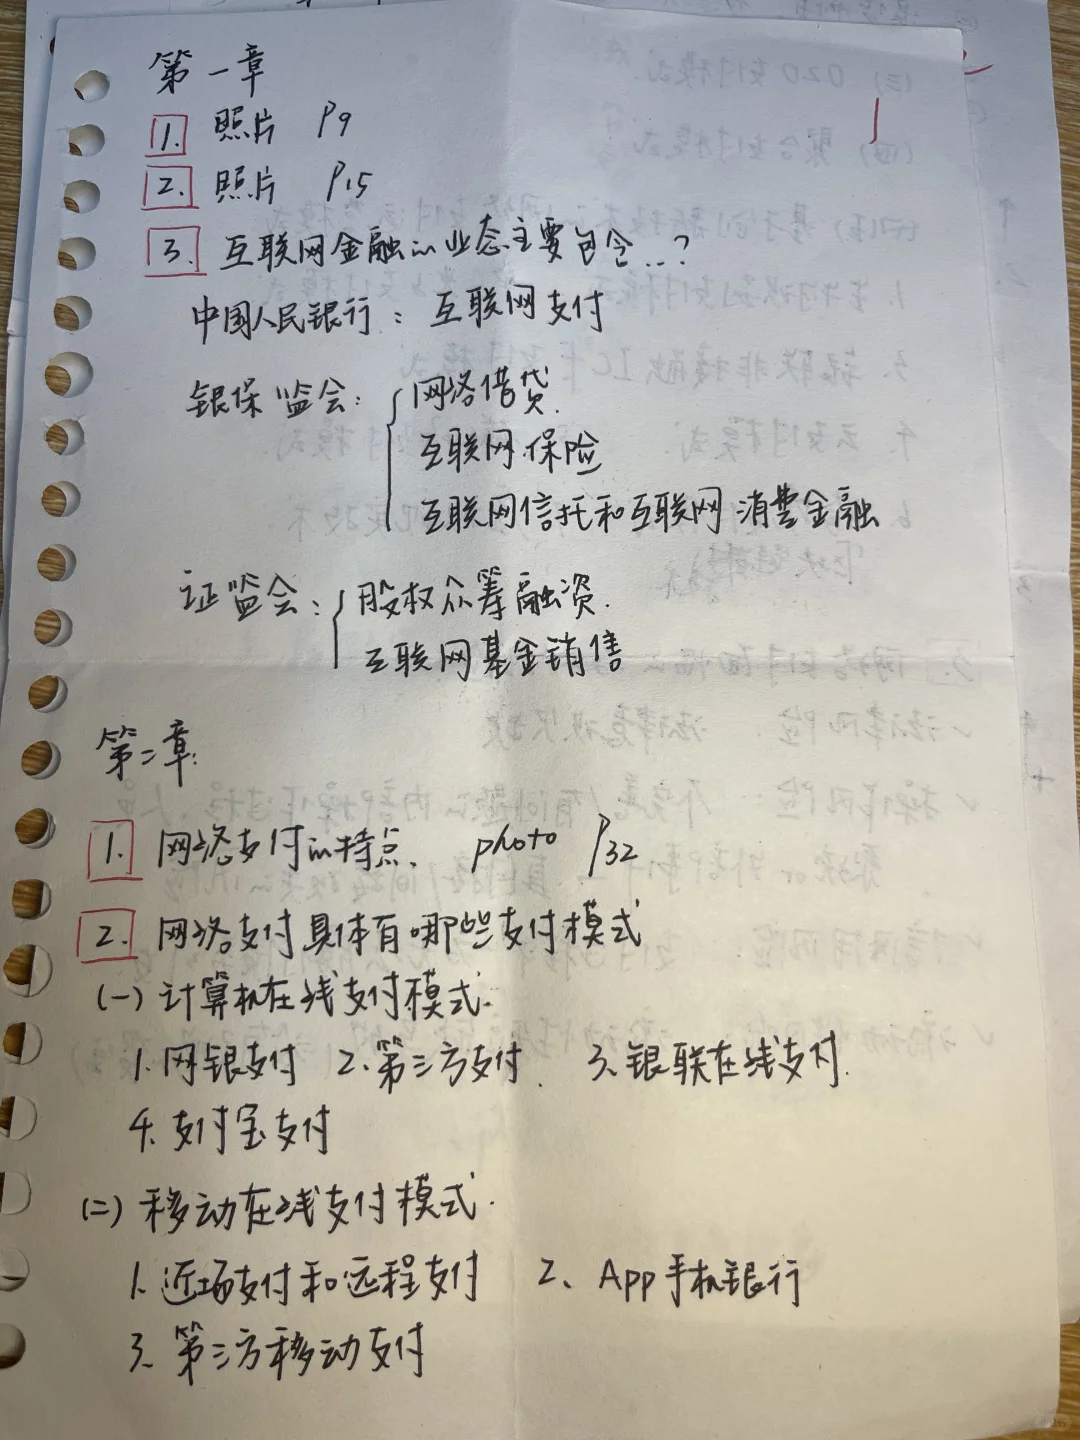 第一章
1. 照片 P9
2. 照片 P15
3. 互联网金融的业态主要包含...?
中国人民银行: 互联网支付
银保监会: 网络借贷.
互联网保险
互联网信托和互联网消费金融
证监会: 股权众筹融资.
互联网基金销售
第二章:
1. 网络支付的特点. photo P32
2. 网络支付具体有哪些支付模式
(一) 计算机在线支付模式.
1. 网银支付 2. 第三方支付. 3. 银联在线支付.
4. 支付宝支付
(二) 移动在线支付模式.
1. 近场支付和远程支付 2、App手机银行
3. 第三方移动支付